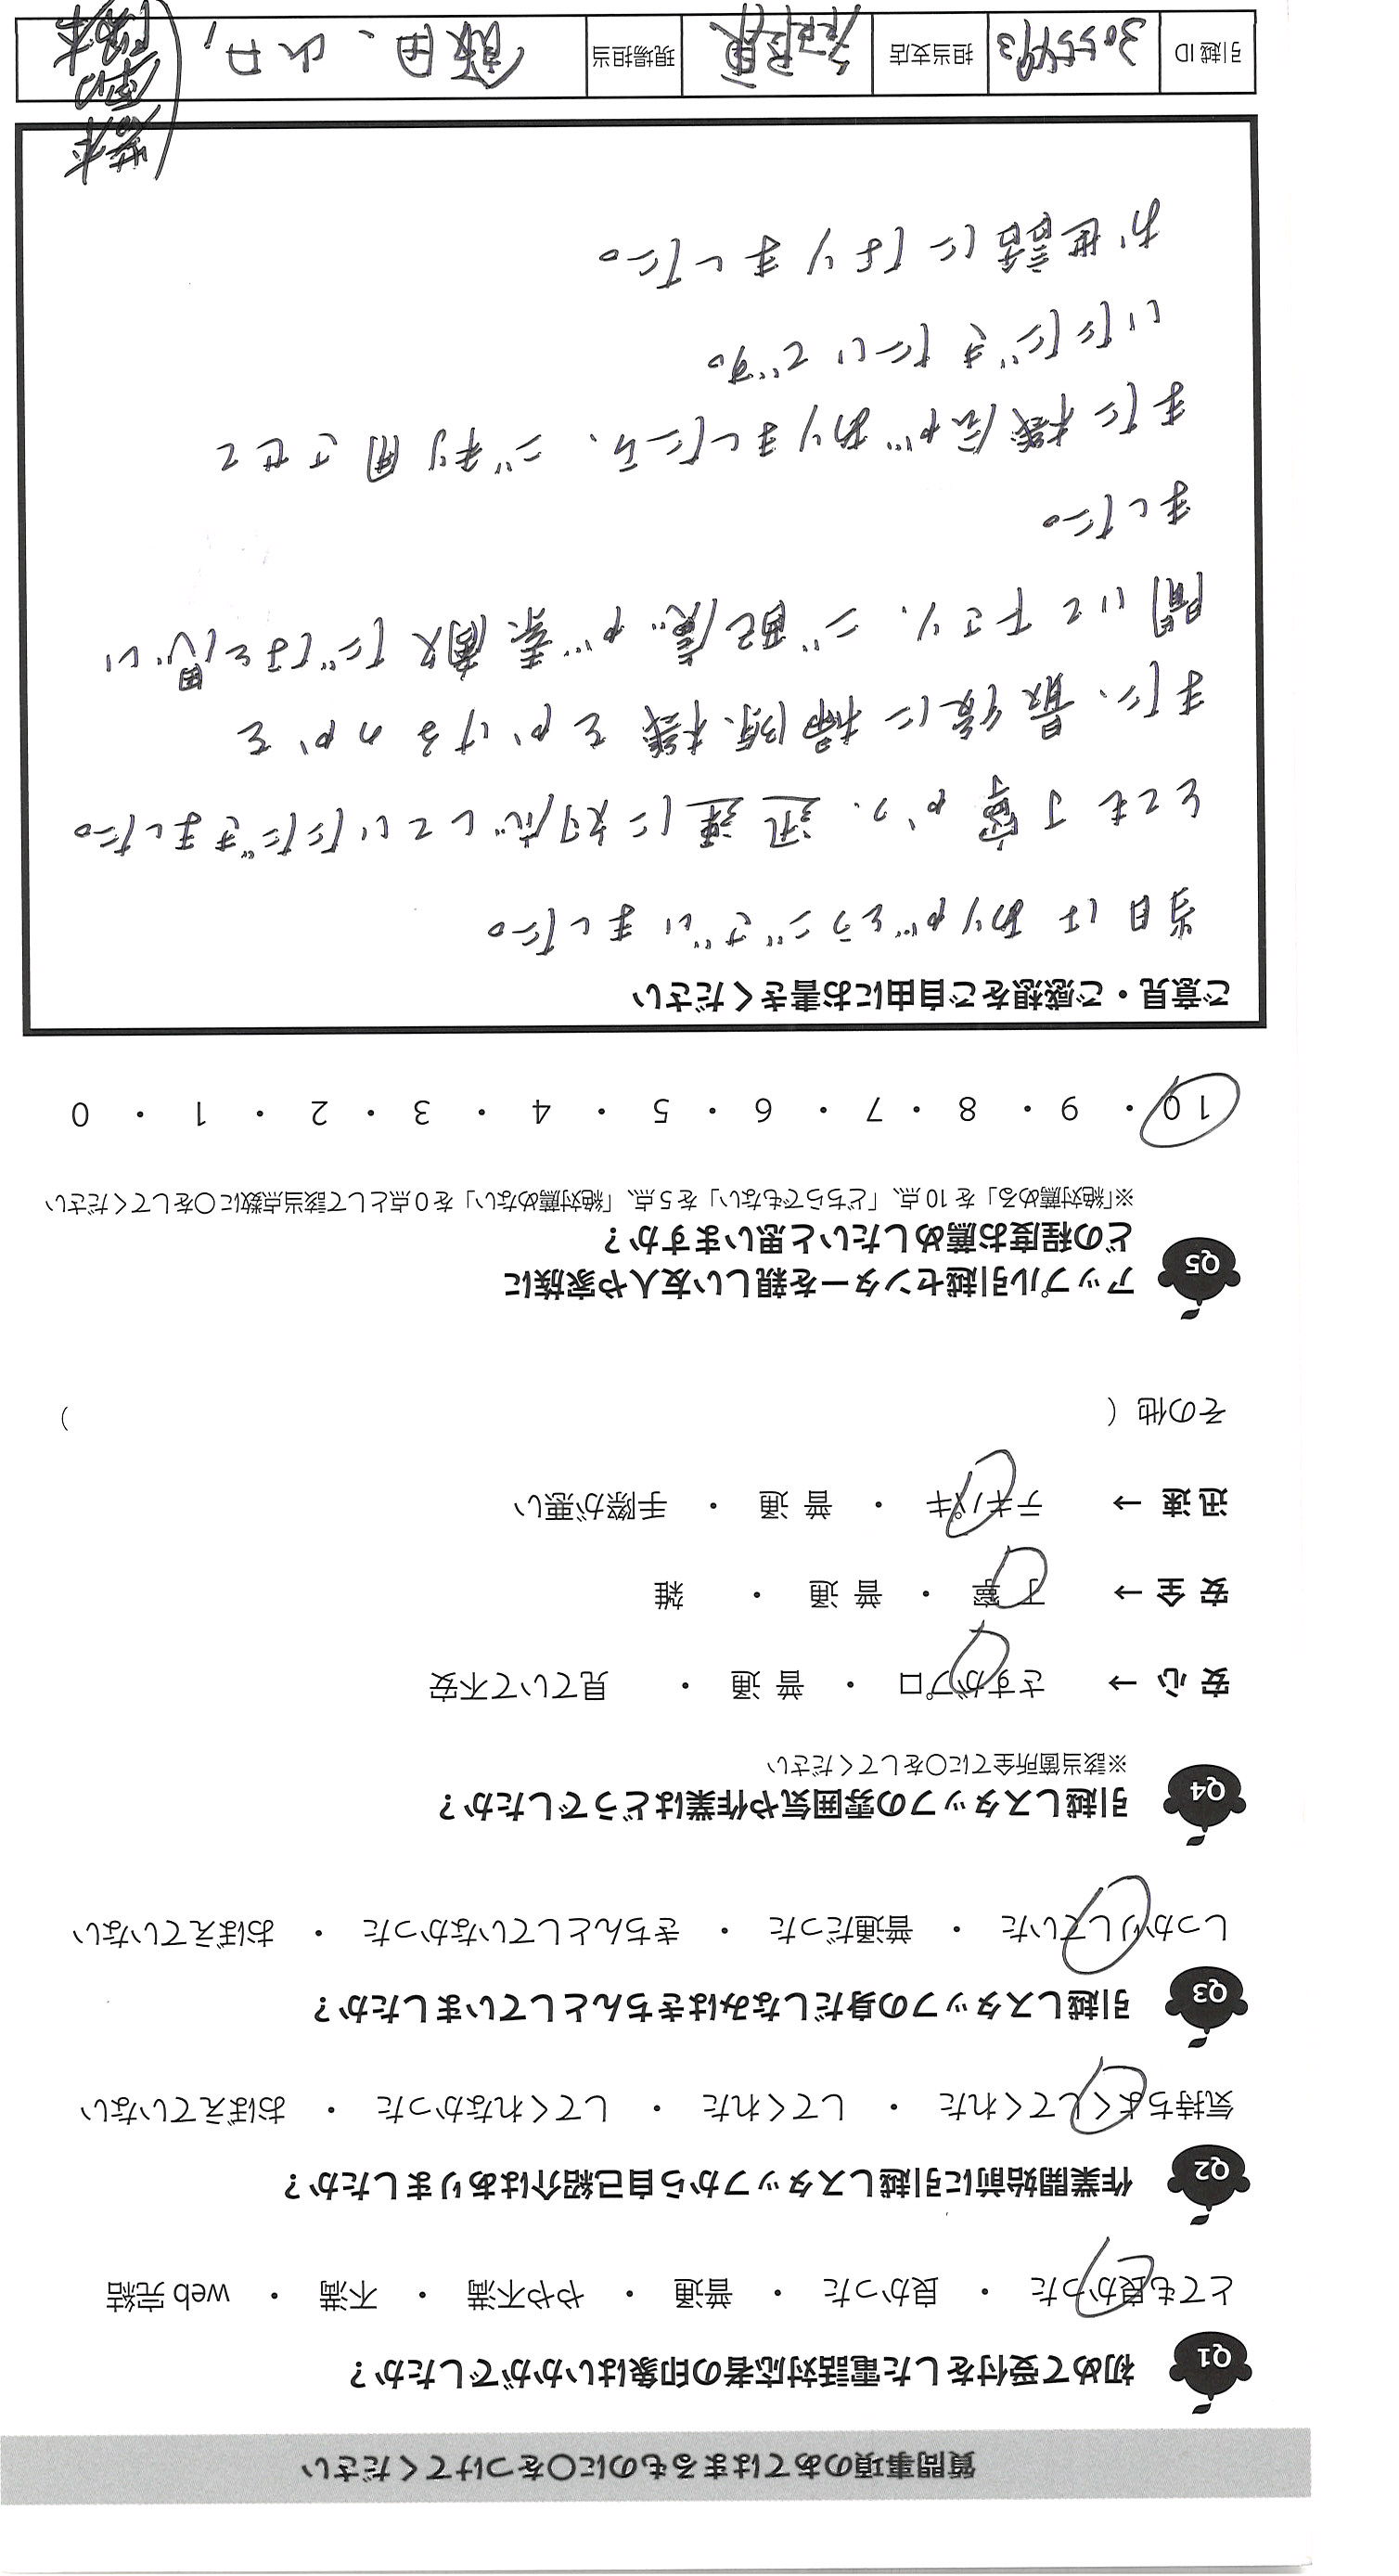 質問事項のあてはまるものに○をつけてください
Q1 初めて受付をした電話対応者の印象はいかがでしたか？
とても良かった ・ 良かった ・ 普通 ・ やや不満 ・ 不満 ・ web 完結
Q2 作業開始前に引越しスタッフから自己紹介はありましたか？
気持ちよくしてくれた ・ してくれた ・ してくれなかった ・ おぼえていない
Q3 引越しスタッフの身だしなみはきちんとしていましたか？
しっかりしていた ・ 普通だった ・ きちんとしていなかった ・ おぼえていない
Q4 引越しスタッフの雰囲気や作業はどうでしたか？
※該当箇所全てに○をしてください
安 心 → さすがプロ ・ 普 通 ・ 見ていて不安
安 全 → 丁 寧 ・ 普 通 ・ 雑
迅 速 → テキパキ ・ 普 通 ・ 手際が悪い
その他（ ）
Q5 アップル引越センターを親しい友人や家族に
どの程度お薦めしたいと思いますか？
※「絶対薦める」を 10 点、「どちらでもない」を 5 点、「絶対薦めない」を 0 点として該当点数に○をしてください
10 ・ 9 ・ 8 ・ 7 ・ 6 ・ 5 ・ 4 ・ 3 ・ 2 ・ 1 ・ 0
ご意見・ご感想をご自由にお書きください
当日はありがとうございました。
とても丁寧かつ、迅速に対応していただきました。
また、最後に掃除機をかけるかを
聞いて下さり、ご配慮が素敵だなと思い
ました。
また機会がありましたら、ご利用させて
いただきたいです。
お世話になりました。
引越 ID 3055493 担当支店 現場担当 飯田、山口,